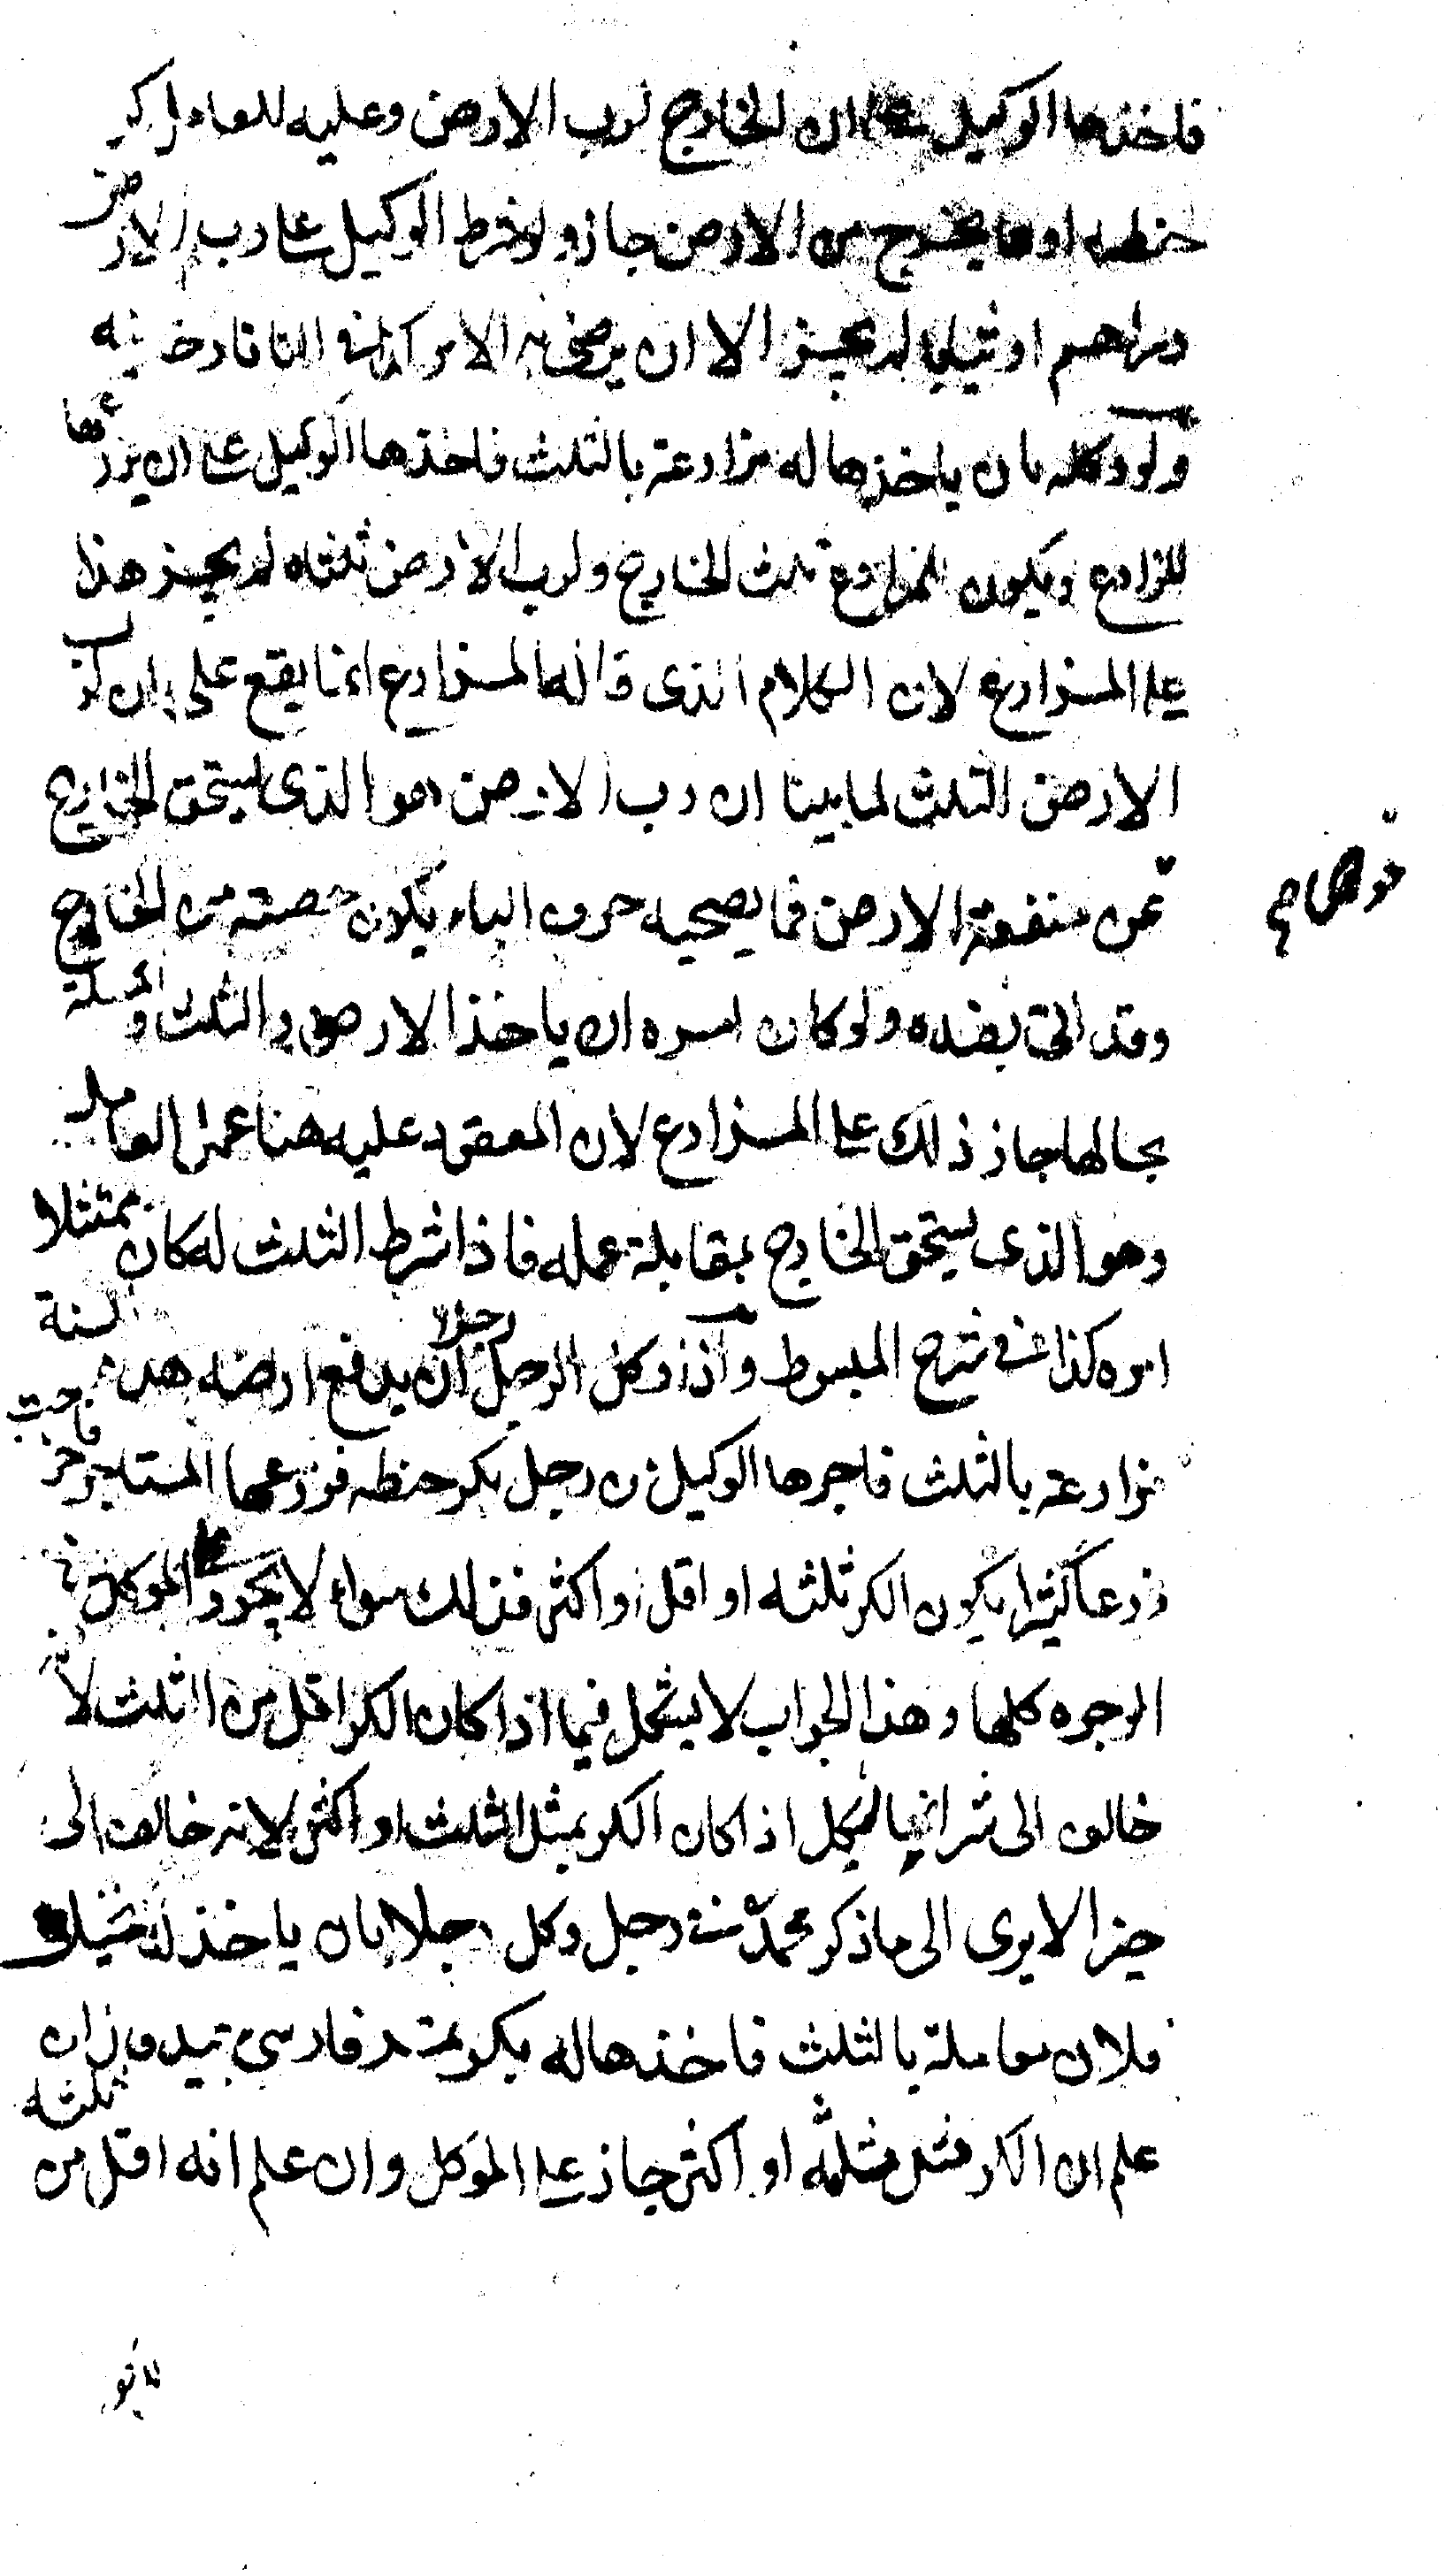 فاخذها الوكيل على ان الخارج لرب الارض وعليه للعامل كر
حنطة او مما يخرج من الارض جاز ولو شرط الوكيل على رب الارض
دراهم او ثيابا لم يجز الا ان يرضى به الامر كذا في التاتارخانيه
ولو وكله بان ياخذها له مزارعة بالثلث فاخذها الوكيل على ان يزرعها
المزارع ويكون للمزارع ثلث الخارج ولرب الارض ثلثاه لم يجز هذا
على المزارع لان الكلام الذى قاله المزارع انما يقع على ان لرب
الارض الثلث لما بينا ان رب الارض هو الذى يستحق الخارج
عن منفعة الارض فما يصحبه حرف الباء يكون حصته من الخارج
وقد اتى بضده ولو كان امره ان ياخذ الارض والثلث والمسئلة
بحالها جاز ذلك على المزارع لان المعقود عليه هنا عمل العامل
وهو الذى يستحق الخارج بمقابلة عمله فاذا شرط الثلث له كان ممتثلا
امره كذا فى شرح المبسوط واذا وكل الرجل رجلا ان يدفع ارضه هذه السنة
مزارعة بالثلث فاجرها الوكيل من رجل بكر حنطه فزرعها المستاجر فاخرجت
زرعا كثيرا يكون الكر ثلثه او اقل او اكثر فذلك سواء لا يجوز على الموكل فى
الوجوه كلها وهذا الجواب لا يشكل فيما اذا كان الكر اقل من الثلث لانه
خالف الى شر انما يشكل اذا كان الكر بمثل الثلث او اكثر لانه خالف الى
خير الا يرى الى ما ذكر محمد رجل وكل رجلا بان ياخذ له نخيل
فلان معاملة بالثلث فاخذها له بكر تمر فارسى جيد فان
علم ان الكر مثل ثلثه او اكثر جاز على الموكل وان علم انه اقل من ثلثه